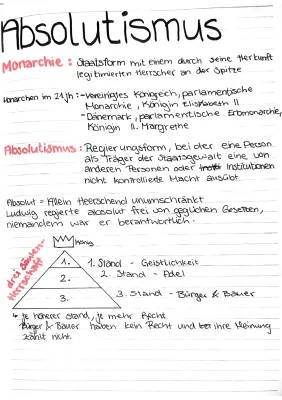 Absolutismus
Monarchie : Staatsform mit einem durch seine Herkunft
legitimierten Herrscher an der Spitze
Monarchen im 21.Jh : - Vereinigtes Königreich, parlamentarische
Monarchie, Königin Elisabeth II
- Dänemark, parlamentische Erbmonarchie,
Königin II. Margrethe
Absolutismus : Regierungsform, bei der eine Person
als Träger der Staatsgewalt eine von
anderen Personen oder Institutionen
nicht kontrollierte Macht ausübt
Absolut = Allein Herrschend unumschränkt
Ludwig regierte absolut frei von jeglichen Gesetzen,
niemandem war er berantwortlich.
König
drei Säulen-
Herrschaft
1. 1. Stand - Geistlichkeit
2. 2. Stand - Adel
3. 3. Stand - Bürger & Bauer
↳ je höherer Stand, je mehr Recht
Bürger & Bauer haben kein Recht und bei ihre Meinung
zählt nicht.